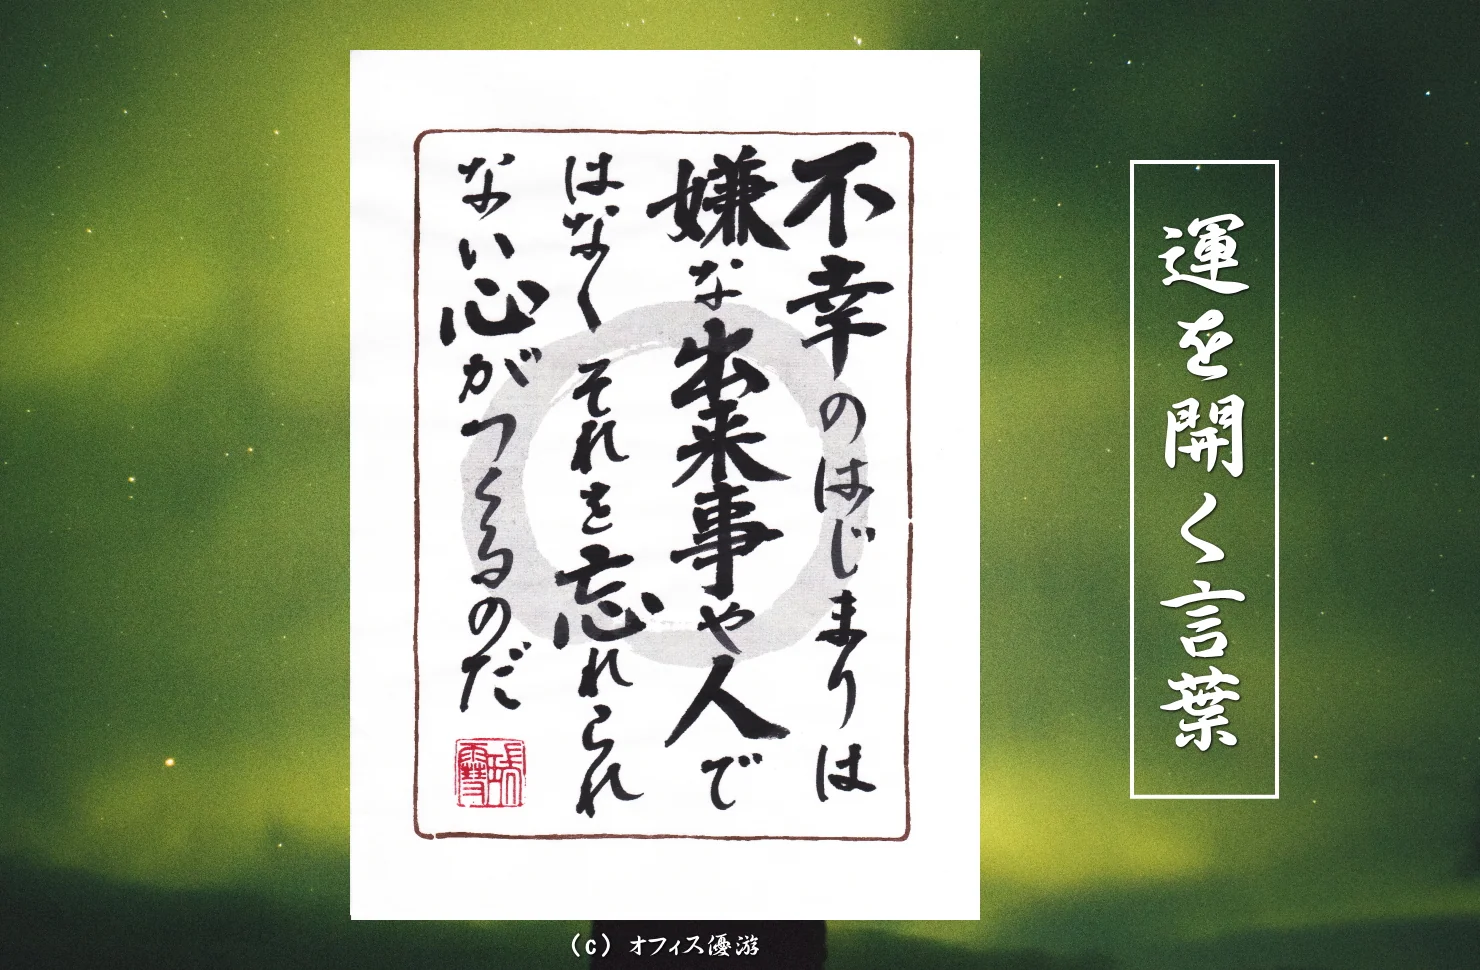 運を開く言葉
不幸のはじまりは
嫌な出来事や人で
はなくそれを忘れられ
ない心がつくるのだ
(c) オフィス優游